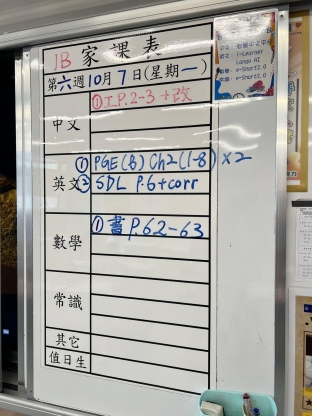 1B 家課表
第六週10月7日(星期一)
中文 ①工P.2-3+改
英文 ① PGE(B) Ch2(1-8)×2
② SDL P.6+corr
數學 ① 書 P.62-63
常識
其它
值日生